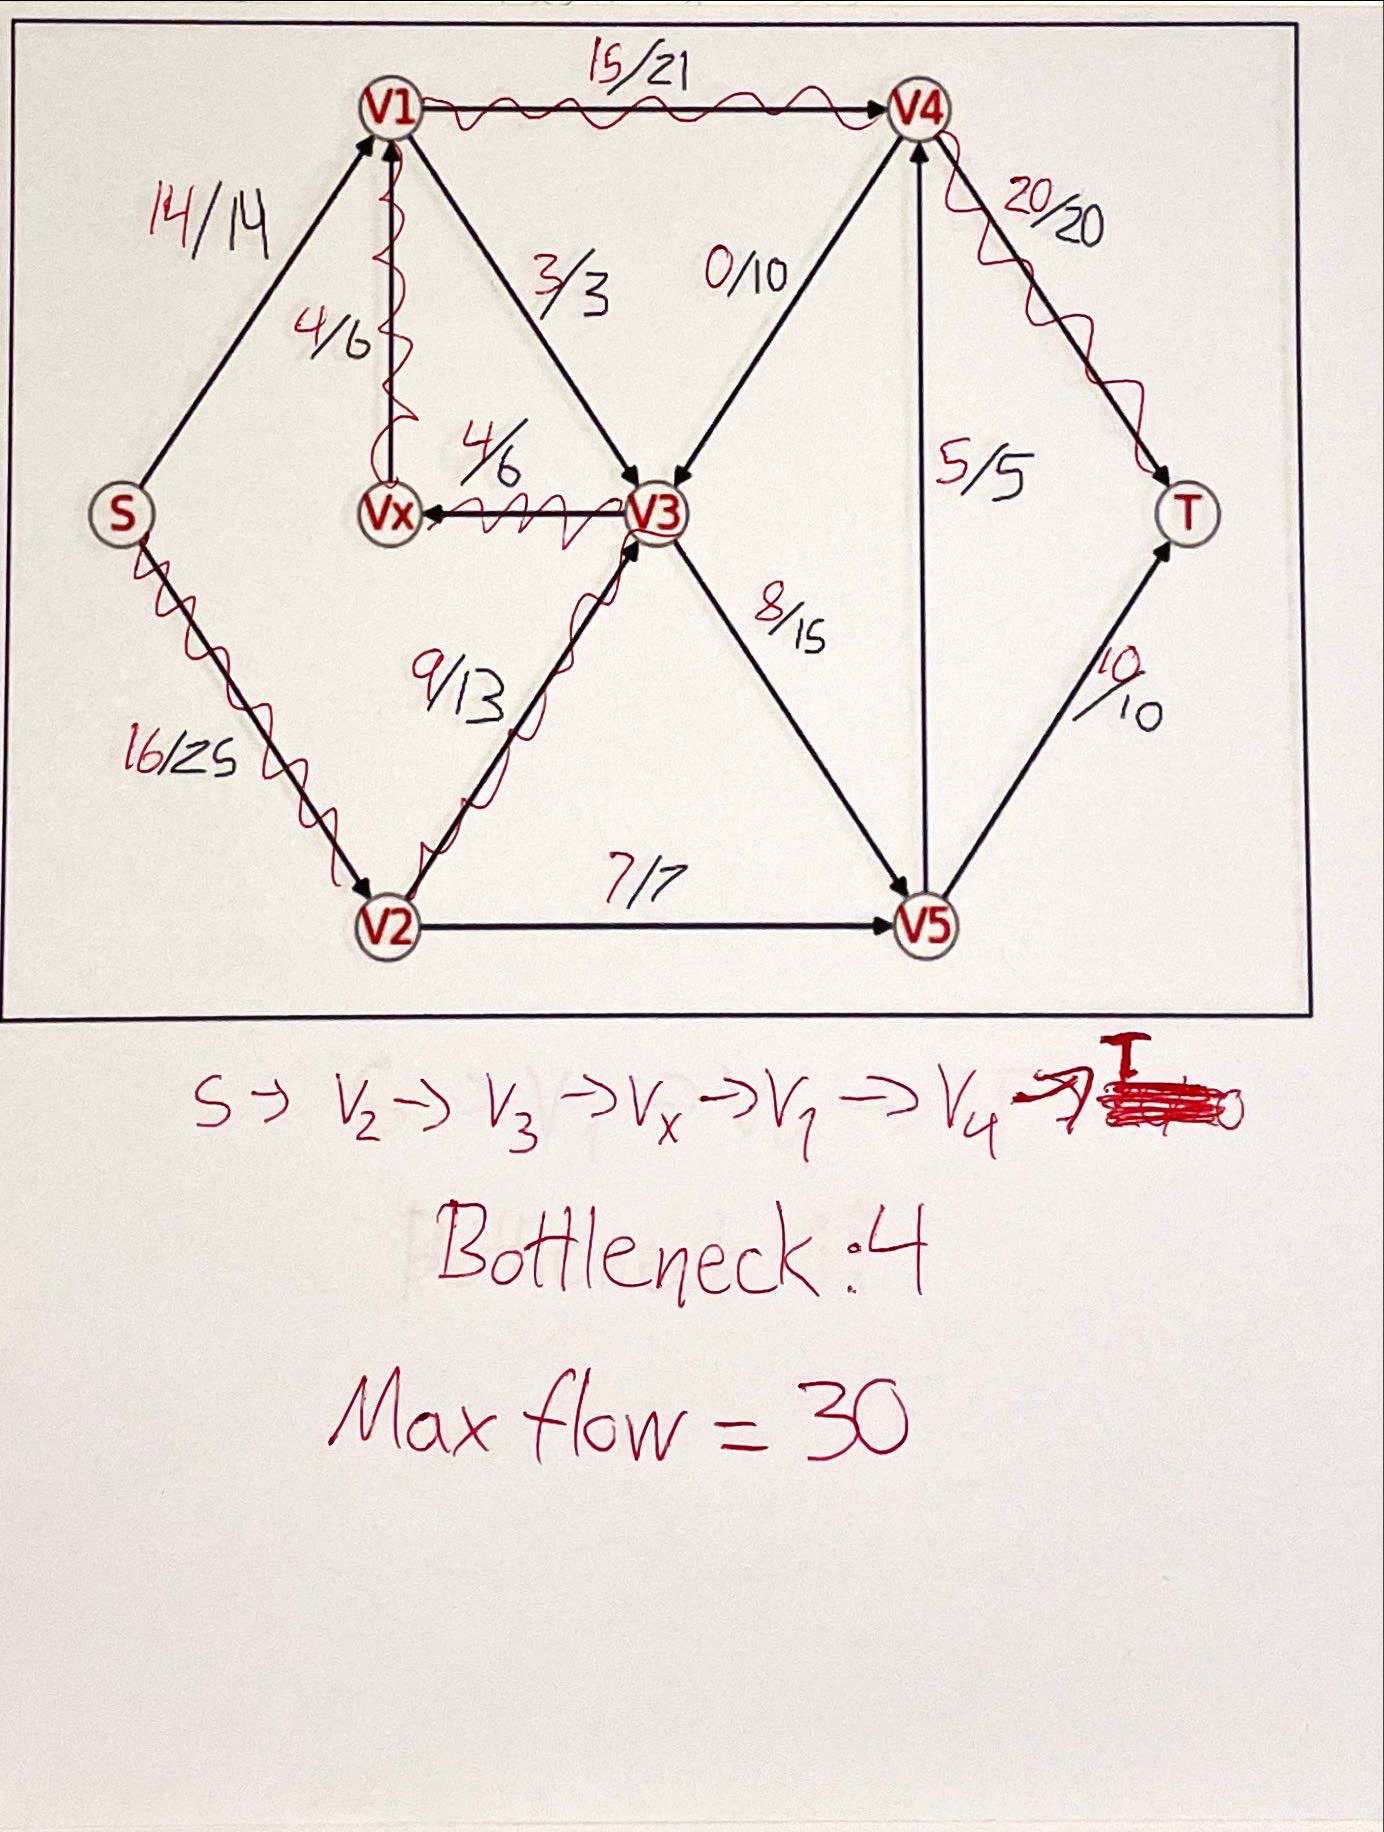 15/21
V1
V4
14/14
20/20
3/3
0/10
4/6
4/6
5/5
S
Vx
V3
T
8/15
9/13
10/10
16/25
7/7
V2
V5
S → V2 → V3 → Vx → V1 → V4 → T
Bottleneck : 4
Max flow = 30